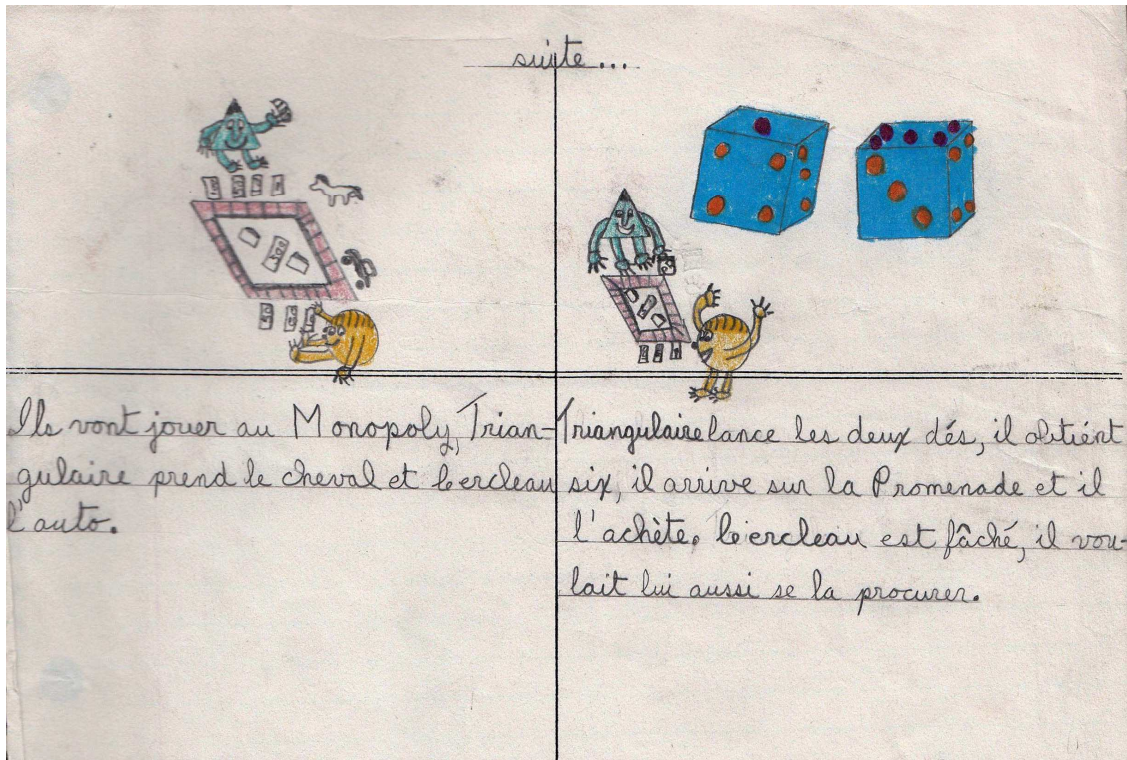 suite...
Ils vont jouer au Monopoly, Trian-
gulaire prend le cheval et Cercleau
l'auto.
Triangulaire lance les deux dés, il obtient
six, il arrive sur la Promenade et il
l'achète. Cercleau est fâché, il vou-
lait lui aussi se la procurer.